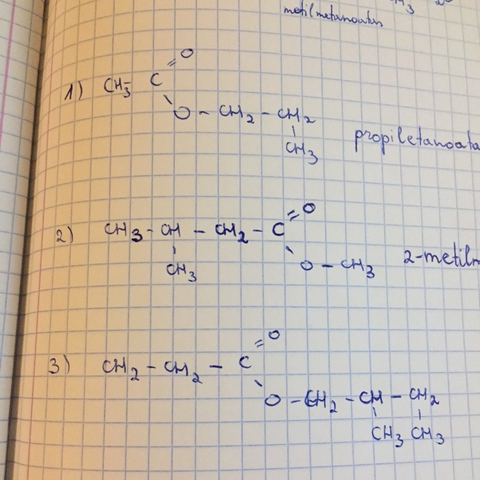 metilmetanoatas
1) CH3 - C = O
O - CH2 - CH2
CH3
propiletanoata
2) CH3 - CH - CH2 - C = O
CH3
O - CH3
2-metilm
3) CH2 - CH2 - C = O
O - CH2 - CH - CH2
CH3 CH3